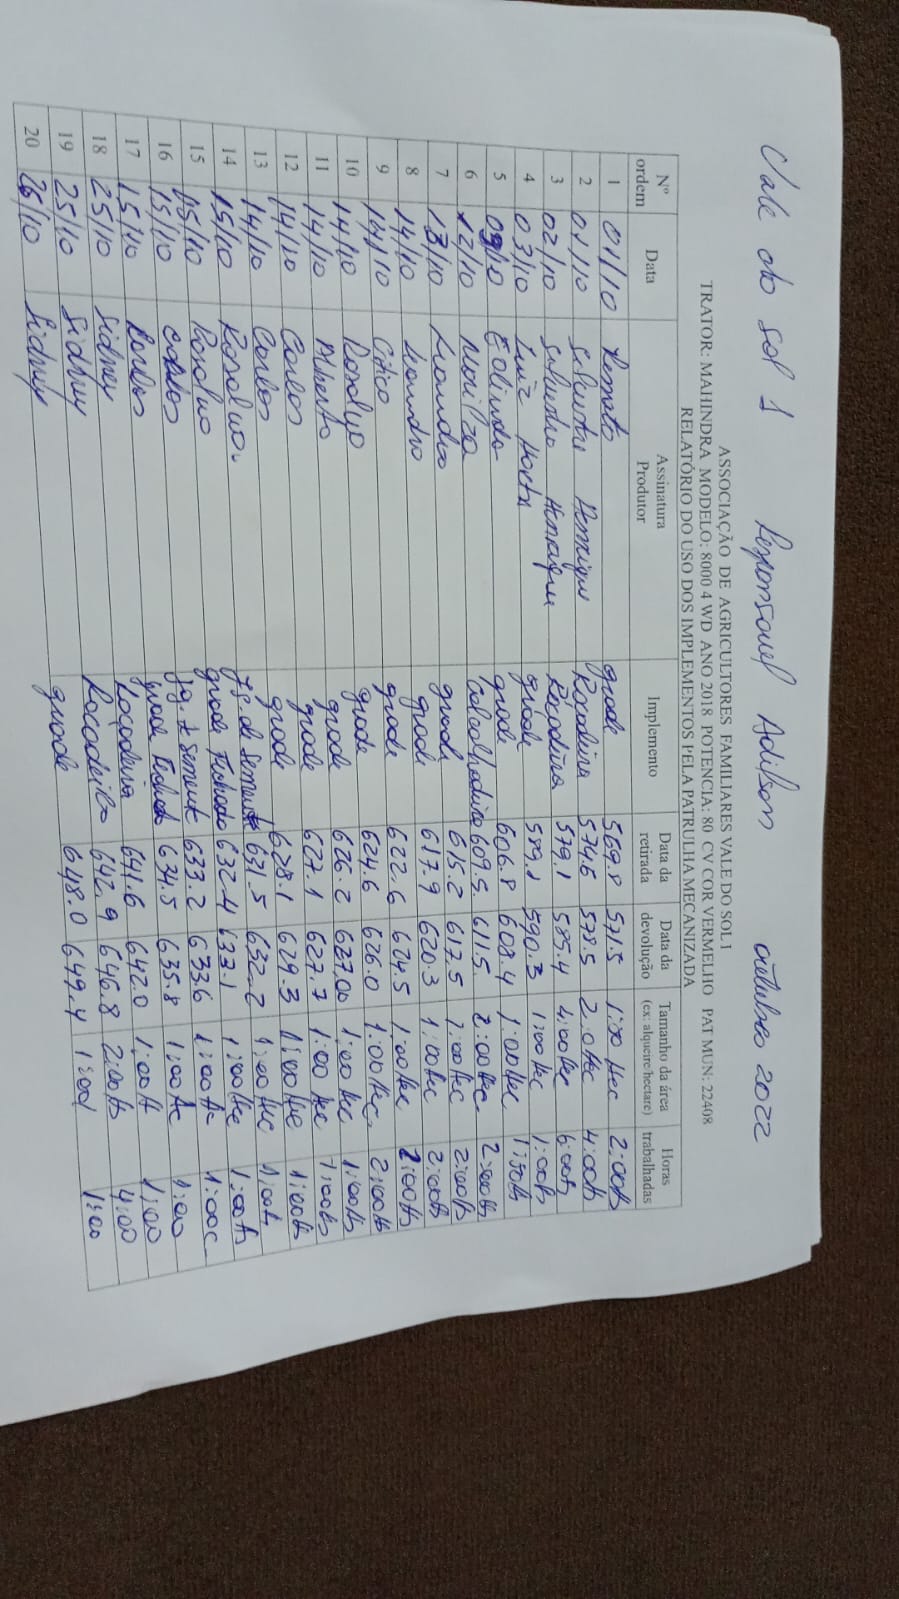 Vale do Sol 1 Responsavel Adilson outubro 2022
ASSOCIAÇÃO DE AGRICULTORES FAMILIARES VALE DO SOL I
TRATOR: MAHINDRA MODELO: 8000 4 WD ANO 2018 POTENCIA: 80 CV COR VERMELHO PAT MUN: 22408
RELATÓRIO DO USO DOS IMPLEMENTOS PELA PATRULHA MECANIZADA
Nº ordem Data Assinatura Produtor Implemento Data da retirada Data da devolução Tamanho da área (ex: alqueire/hectare) Horas trabalhadas
1 01/10 Renato grade 569.8 571.5 Hec 2:00hs
2 01/10 Roçadeira 574.6 578.5 2:0 Hec 4:00hs
3 02/10 Roçadeira 579.1 585.4 4:00 Hec 6:00hs
4 03/10 Luiz grade 589.1 590.3 1:00 Hec 1:00hs
5 09/10 Eolinda grade 606.8 608.4 1:00 Hec 1:30hs
6 12/10 Marilza 609.5 611.5 2:00 Hec 2:00hs
7 13/10 Leandro grade 615.2 617.5 2:00hs
8 14/10 Leandro grade 617.9 620.3 1:00 Hec 2:00hs
9 14/10 grade 622.6 624.5 1:00 Hec 2:00hs
10 14/10 grade 624.6 626.0 1:00 Hec 2:00hs
11 14/10 Alberto grade 626.2 627,00 1:00 Hec 1:00hs
12 14/10 Carlos grade 627.1 627.7 1:00 Hec 1:00hs
13 14/10 Carlos grade 628.1 629.3 1:00 1:00hs
14 15/10 631.5 632.2 1:00 Hec 1:00hs
15 15/10 grade 632.4 633.1 1:00 Hec 1:00hs
16 15/10 Carlos 633.2 633.6 1:00
17 15/10 Carlos grade 634.5 635.8 1:00 1:00
18 25/10 Sidney Roçadeira 641.6 642.0 1:00 1:00
19 25/10 Sidney 642.9 646.8 2:00 4:00
20 26/10 Sidney grade 648.0 649.4 1:00 1:00